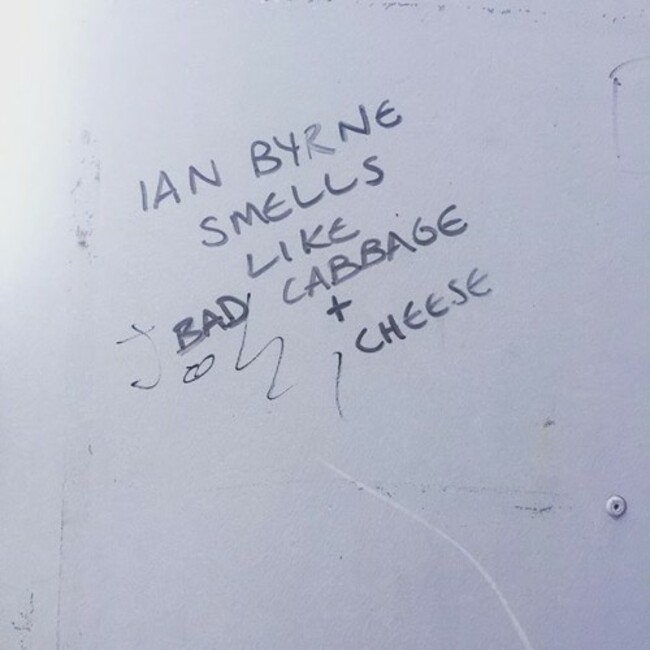 IAN BYRNE
SMELLS
LIKE
BAD CABBAGE
+
CHEESE